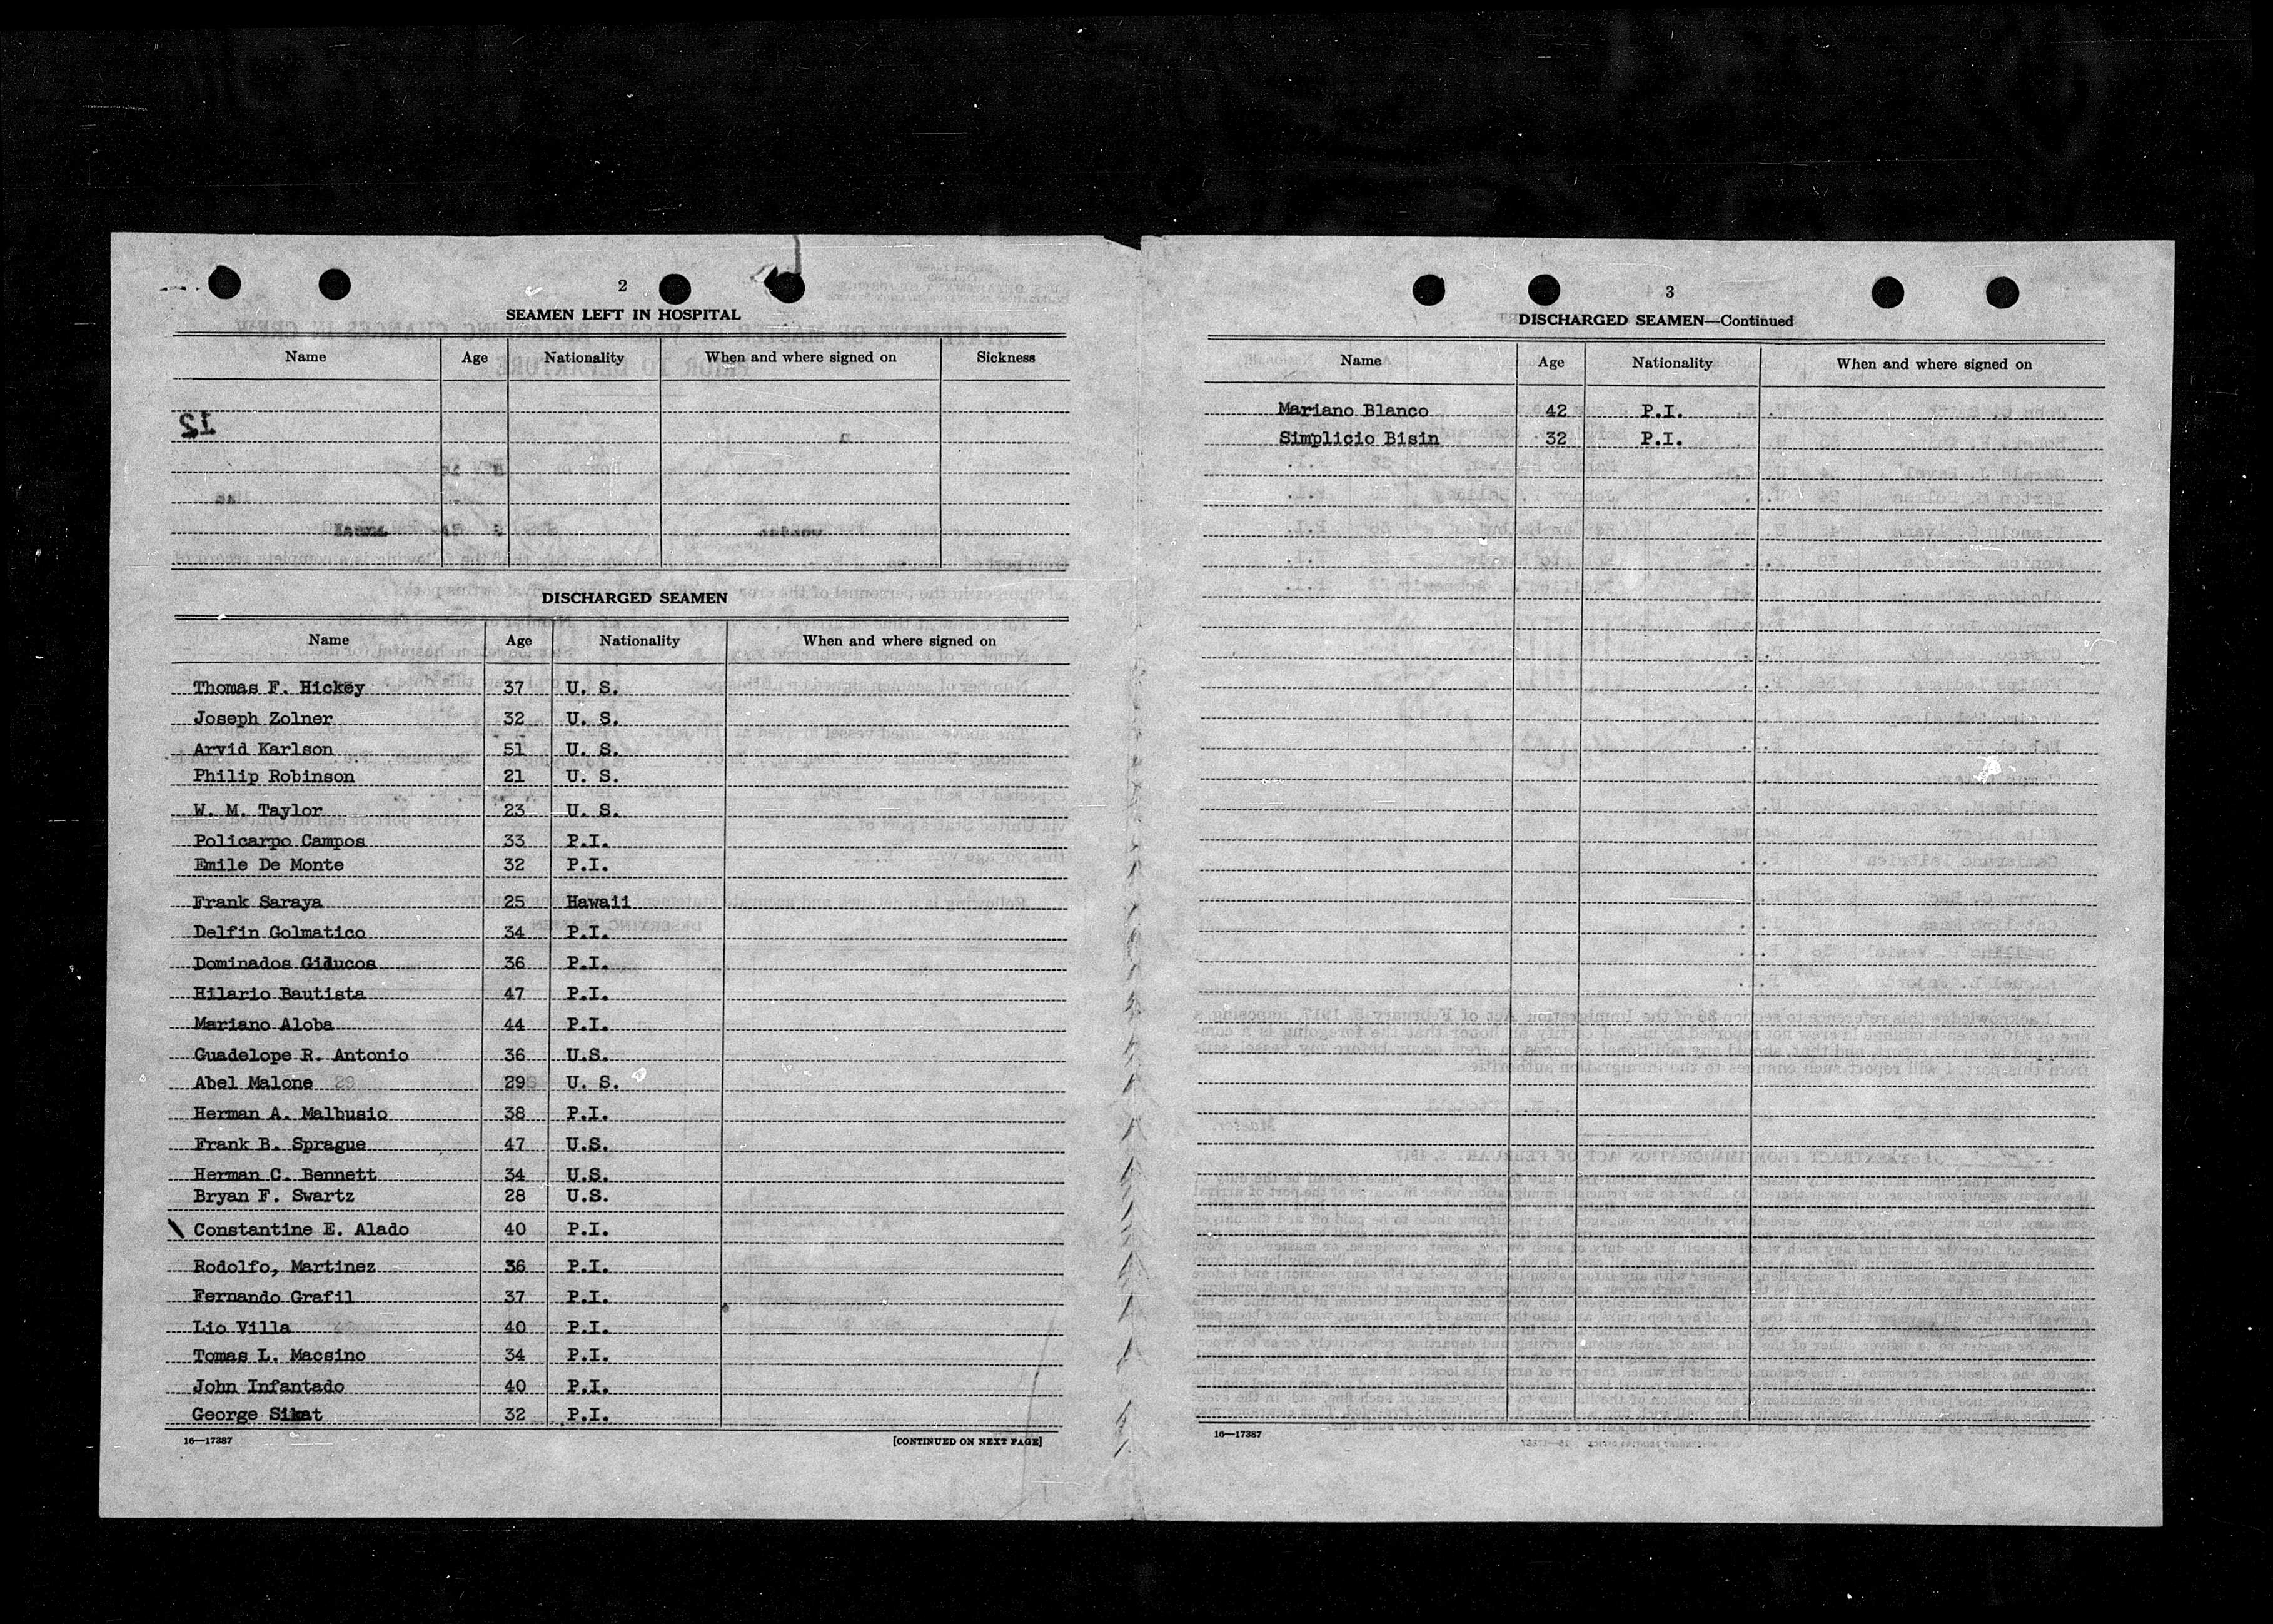 2
SEAMEN LEFT IN HOSPITAL
Name Age Nationality When and where signed on Sickness
DISCHARGED SEAMEN
Name Age Nationality When and where signed on
Thomas F. Hickey 37 U. S.
Joseph Zolner 32 U. S.
Arvid Karlson 51 U. S.
Philip Robinson 21 U. S.
W. M. Taylor 23 U. S.
Policarpo Campos 33 P.I.
Emile De Monte 32 P.I.
Frank Saraya 25 Hawaii
Delfin Golmatico 34 P.I.
Dominados Giducos 36 P.I.
Hilario Bautista 47 P.I.
Mariano Aloba 44 P.I.
Guadelope R. Antonio 36 U.S.
Abel Malone 29 U. S.
Herman A. Malbusio 38 P.I.
Frank B. Sprague 47 U.S.
Herman C. Bennett 34 U.S.
Bryan F. Swartz 28 U.S.
Constantine E. Alado 40 P.I.
Rodolfo, Martinez 36 P.I.
Fernando Grafil 37 P.I.
Lio Villa 40 P.I.
Tomas L. Macsino 34 P.I.
John Infantado 40 P.I.
George Sikat 32 P.I.
16—17387 [CONTINUED ON NEXT PAGE]
3
DISCHARGED SEAMEN—Continued
Name Age Nationality When and where signed on
Mariano Blanco 42 P.I.
Simplicio Bisin 32 P.I.
16—17387